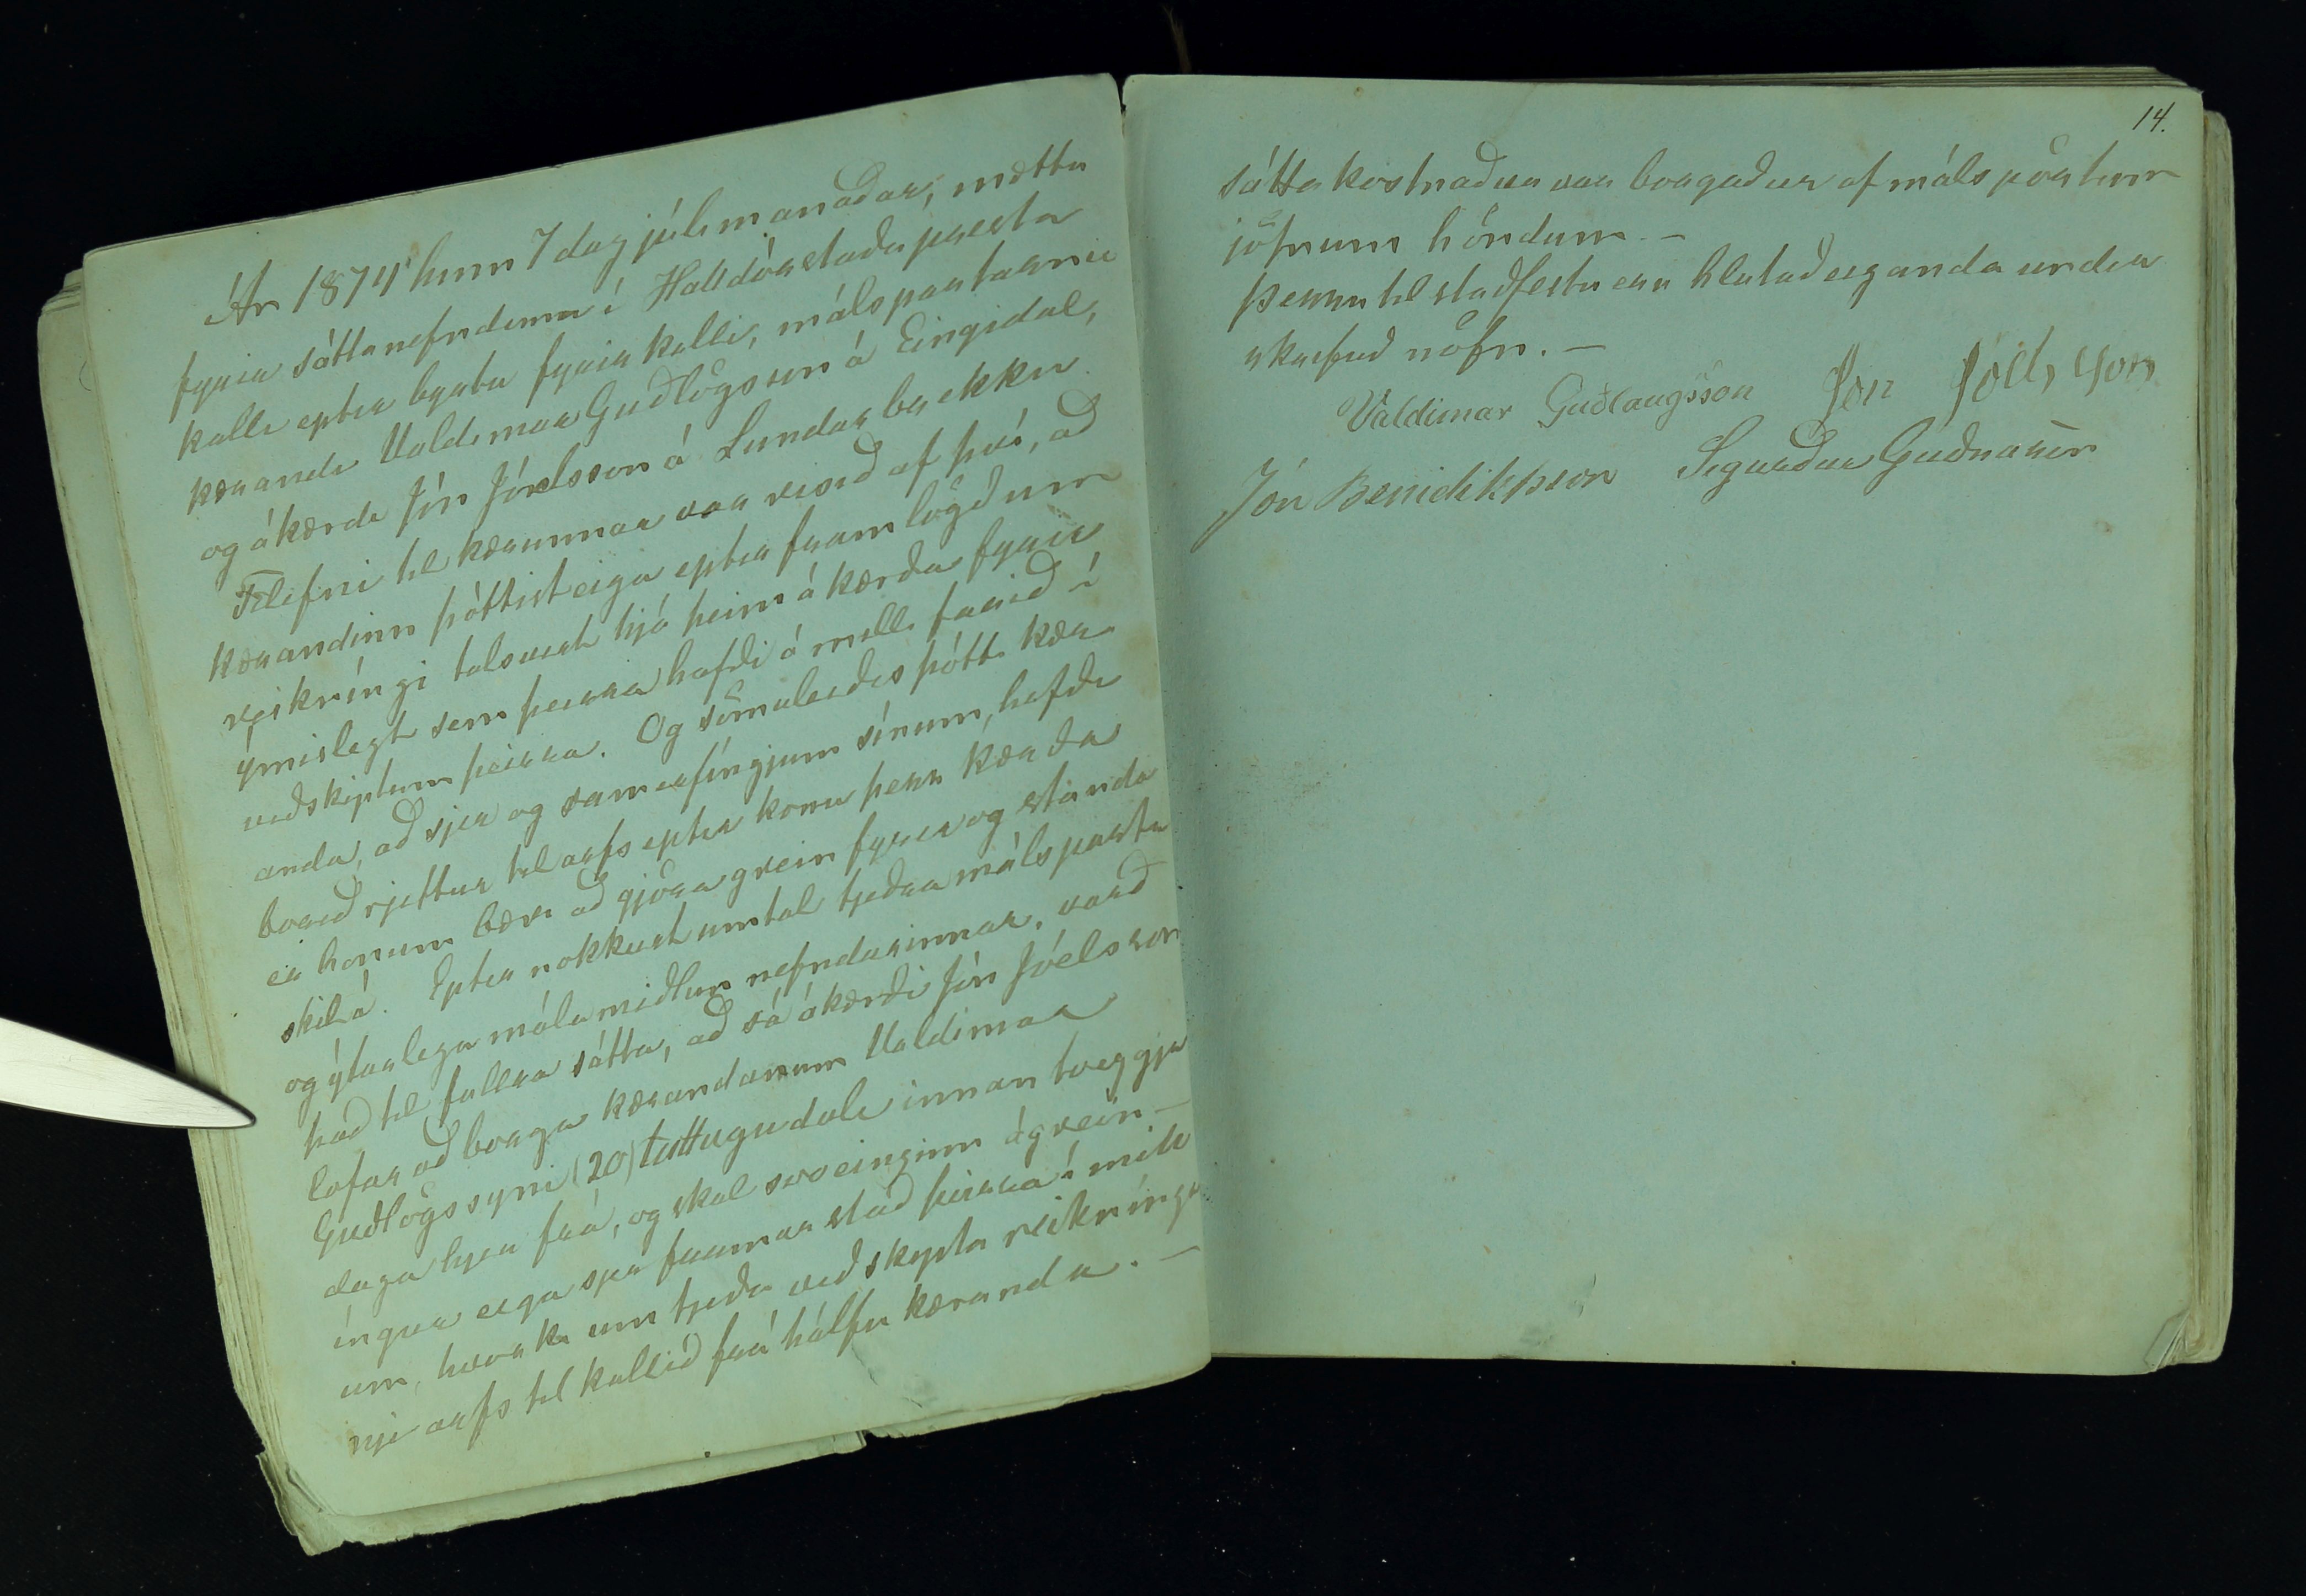 Ár 1874 hinn 7 dag júlímanaðar, mættu
fyrir sáttanefndinni í Halldórsstaðapresta
kalli eptir byrtu fyrirkalli, málspartarnir
kærandi Valdemar Guðlögsson á Eingidal,
og ákærdi Jón Jóelsson á Lundarbrekku
Tilefni til kærunnar var risið af því, að
kærandinn þóttist eiga eptir framlögðum
reikníngi talsvert hjá þeim ákærða fyrir
ýmislegt sem þeirra hafði á milli farið í
viðskiptum þeirra. Og sömuleiðis þótti kær-
anda, að sjer og samerfíngjum sínum, hefði
borið rjettur til arfs eptir konu þess kærða
er honum bæri að gjöra grein fyrir og standa
skil á. Eptir nokkurt umtal tjeðra málsparta
og ýtarlega málamiðlun nefndarinnar, varð
það til fullra sátta, að sá ákærði Jón Jóelsson
lofar að borga kærandanum Valdimar
Guðlögssyni (20) tuttugu dali innan tveggja
daga hjer frá, og skal svo einginn ágrein-
íngur eiga sjer framar stað þeirra í mill
um, hvorki um tjeða viðskypta reiknínga
nje arfs tilkallið frá hálfu kæranda. —
14.
sáttakostnaður var borgaður af málspörtum
jöfnum höndum. —
Þessu til staðfestu eru hlutaðeiganda undir
skrifuð nöfn. —
Valdimar Guðlaugsson Jón Jóelsson
Jón Benidiktsson Sigurður Guðnason